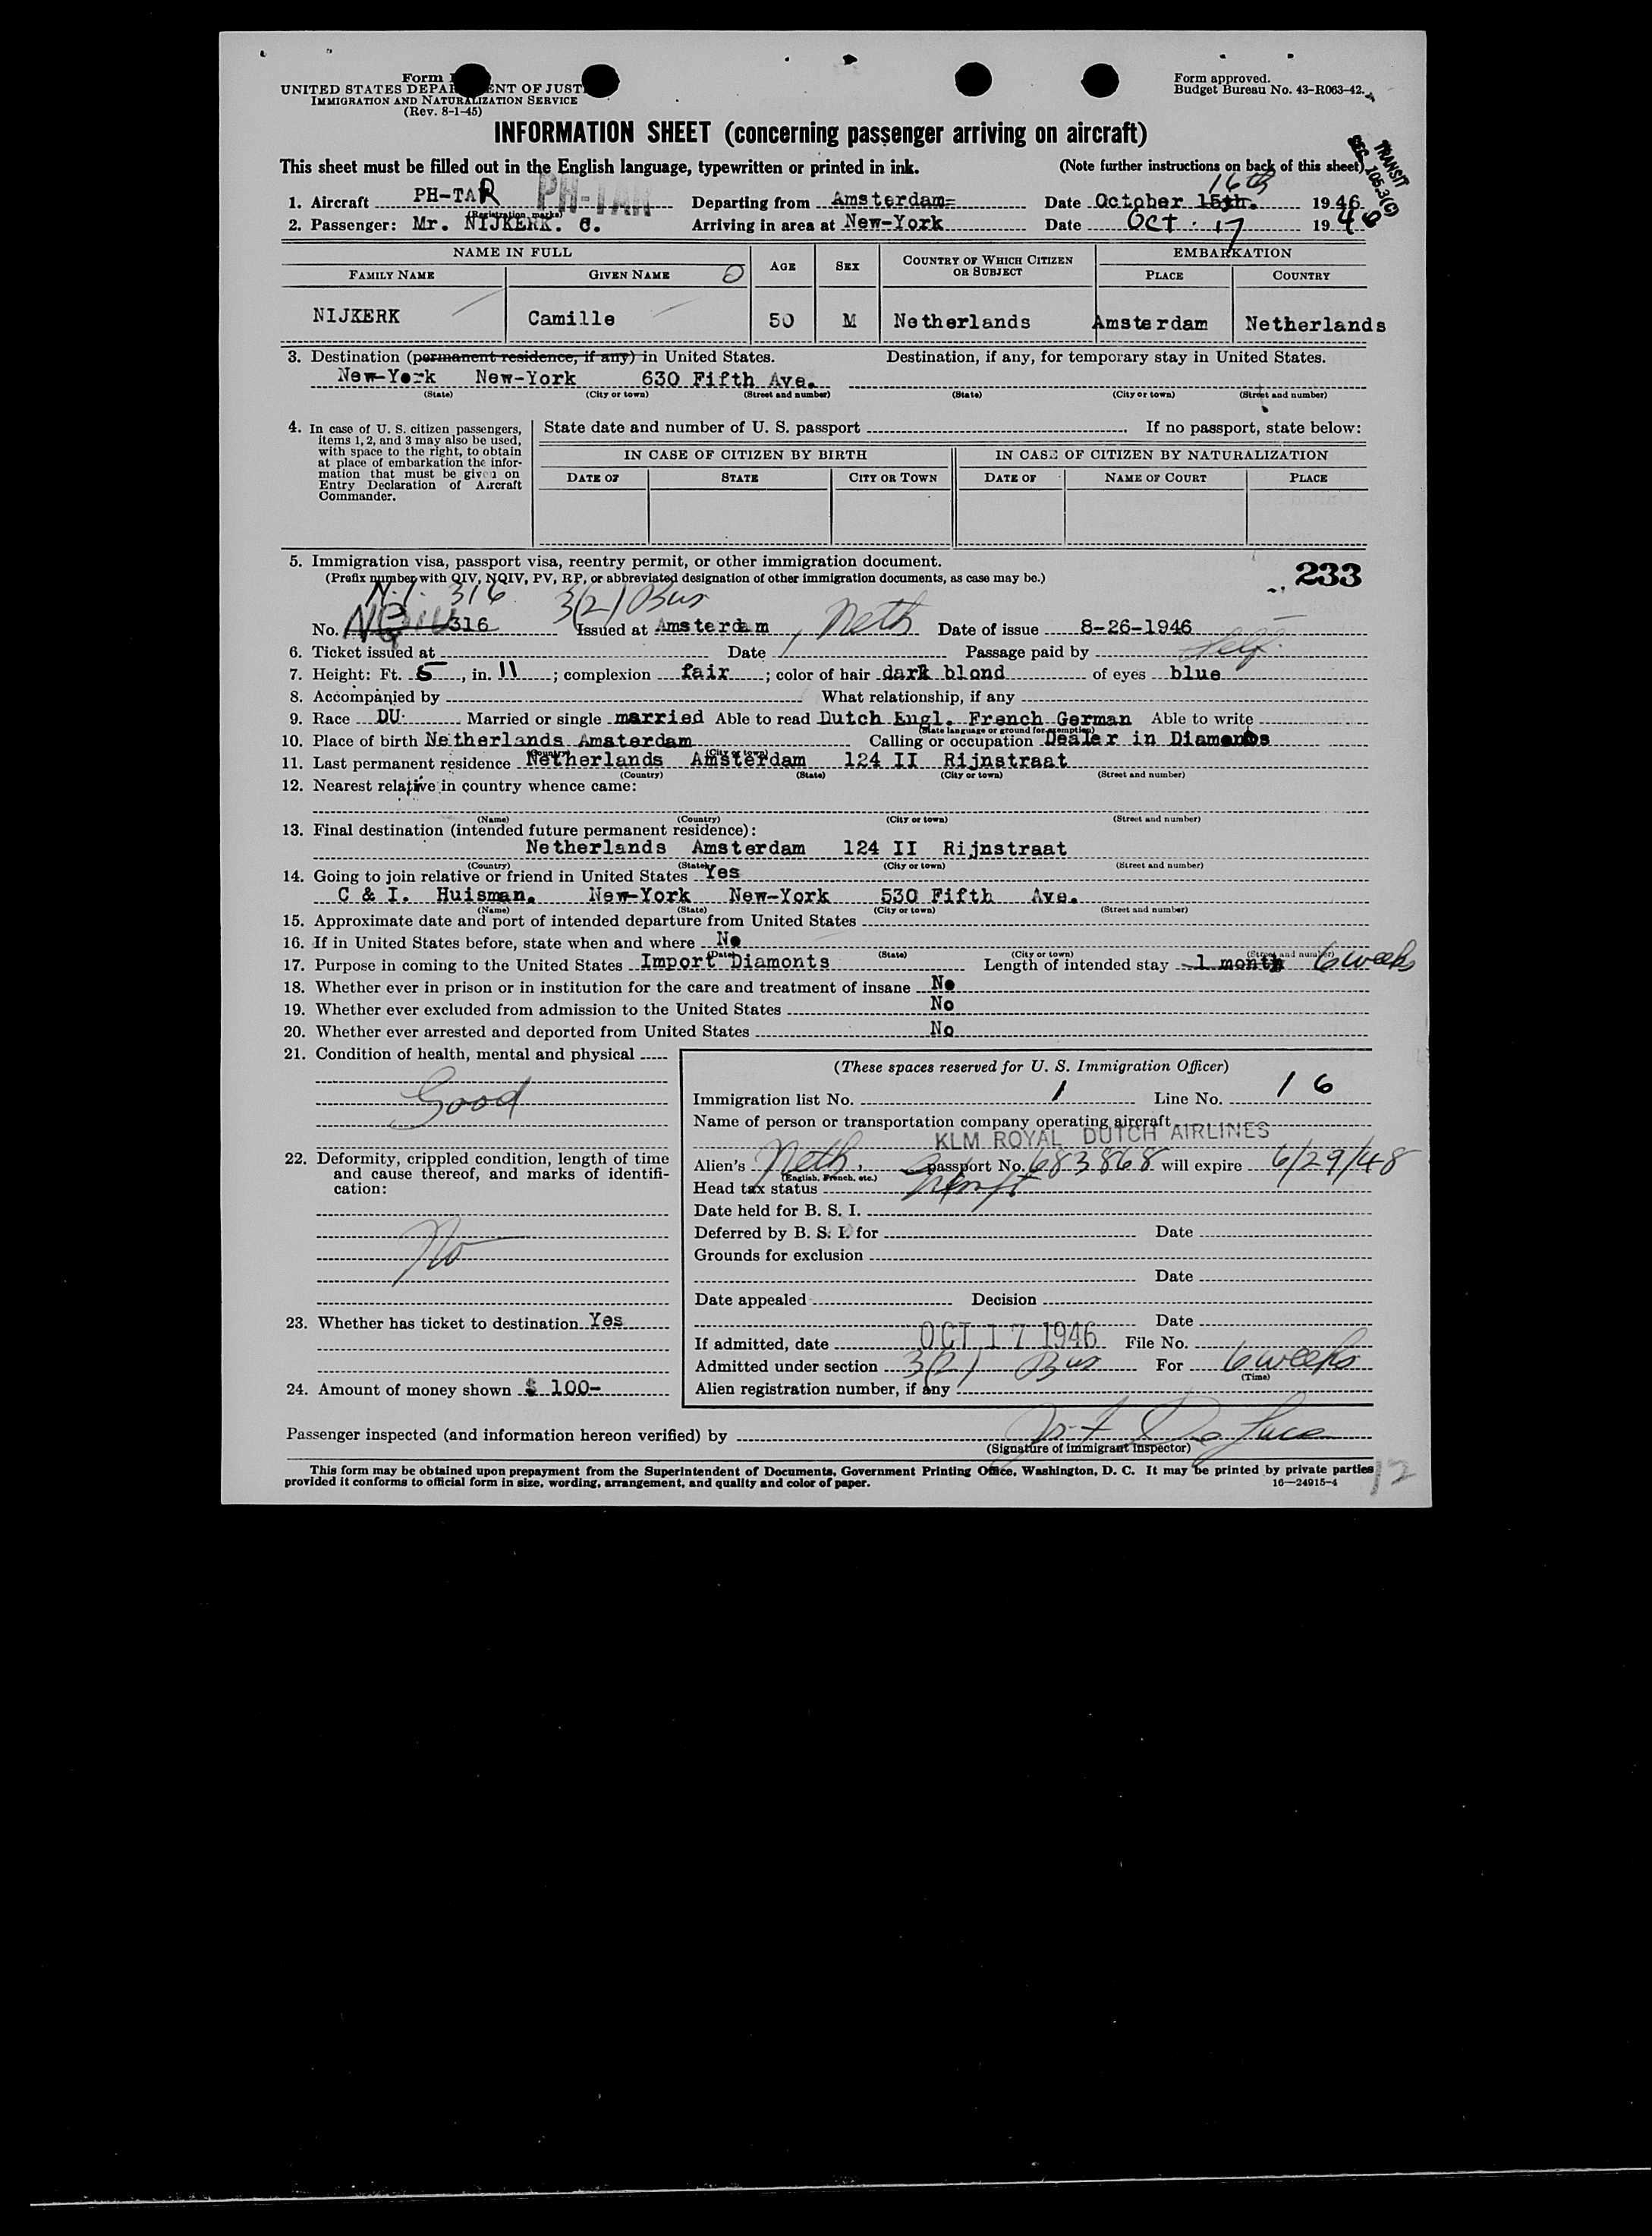 Form
UNITED STATES DEPA ENT OF JUST
IMMIGRATION AND NATURALIZATION SERVICE
(Rev. 8-1-45)
Form approved.
Budget Bureau No. 43-R063-42.
INFORMATION SHEET (concerning passenger arriving on aircraft)
TRANSIT
SEC. 105.3(C)
This sheet must be filled out in the English language, typewritten or printed in ink. (Note further instructions on back of this sheet)
16th
1. Aircraft PH-TAR PH-TAR Departing from Amsterdam= Date October 15th. 1946
(Registration marks)
2. Passenger: Mr. NIJKERK. C. Arriving in area at New-York Date OCT. 17 1946
NAME IN FULL AGE SEX COUNTRY OF WHICH CITIZEN OR SUBJECT EMBARKATION
FAMILY NAME GIVEN NAME PLACE COUNTRY
NIJKERK Camille 50 M Netherlands Amsterdam Netherlands
3. Destination (permanent residence, if any) in United States. Destination, if any, for temporary stay in United States.
New-York New-York 630 Fifth Ave.
(State) (City or town) (Street and number) (State) (City or town) (Street and number)
4. In case of U. S. citizen passengers, items 1, 2, and 3 may also be used, with space to the right, to obtain at place of embarkation the information that must be given on Entry Declaration of Aircraft Commander.
State date and number of U. S. passport If no passport, state below:
IN CASE OF CITIZEN BY BIRTH IN CASE OF CITIZEN BY NATURALIZATION
DATE OF STATE CITY OR TOWN DATE OF NAME OF COURT PLACE
5. Immigration visa, passport visa, reentry permit, or other immigration document.
(Prefix number with QIV, NQIV, PV, RP, or abbreviated designation of other immigration documents, as case may be.)
233
N.I. 316 3(2) Bus
No. 316 Issued at Amsterdam, Neth Date of issue 8-26-1946
6. Ticket issued at Date Passage paid by Self.
7. Height: Ft. 5, in. 11; complexion fair; color of hair dark blond of eyes blue
8. Accompanied by What relationship, if any
9. Race DU. Married or single married Able to read Dutch Engl. French German Able to write
(State language or ground for exemption)
10. Place of birth Netherlands Amsterdam Calling or occupation Dealer in Diamonds
(Country) (City or town)
11. Last permanent residence Netherlands Amsterdam 124 II Rijnstraat
(Country) (State) (City or town) (Street and number)
12. Nearest relative in country whence came:
(Name) (Country) (City or town) (Street and number)
13. Final destination (intended future permanent residence):
Netherlands Amsterdam 124 II Rijnstraat
(Country) (State) (City or town) (Street and number)
14. Going to join relative or friend in United States Yes
C & I. Huisman. New-York New-York 530 Fifth Ave.
(Name) (State) (City or town) (Street and number)
15. Approximate date and port of intended departure from United States
16. If in United States before, state when and where No
(Date) (State) (City or town) (Street and number)
17. Purpose in coming to the United States Import Diamonts Length of intended stay 1 month 6 weeks
18. Whether ever in prison or in institution for the care and treatment of insane No
19. Whether ever excluded from admission to the United States No
20. Whether ever arrested and deported from United States No
21. Condition of health, mental and physical
Good
22. Deformity, crippled condition, length of time and cause thereof, and marks of identification:
No
23. Whether has ticket to destination Yes
24. Amount of money shown $ 100-
(These spaces reserved for U. S. Immigration Officer)
Immigration list No. 1 Line No. 16
Name of person or transportation company operating aircraft
KLM ROYAL DUTCH AIRLINES
Alien's Neth. passport No. 683868 will expire 6/29/48
(English, French, etc.)
Head tax status
Date held for B. S. I.
Deferred by B. S. I. for Date
Grounds for exclusion
Date
Date appealed Decision
Date
If admitted, date OCT 17 1946 File No.
Admitted under section 3(2) Bus For 6 weeks
(Time)
Alien registration number, if any
Passenger inspected (and information hereon verified) by
(Signature of immigrant inspector)
This form may be obtained upon prepayment from the Superintendent of Documents, Government Printing Office, Washington, D. C. It may be printed by private parties
provided it conforms to official form in size, wording, arrangement, and quality and color of paper. 16—24915-4
12